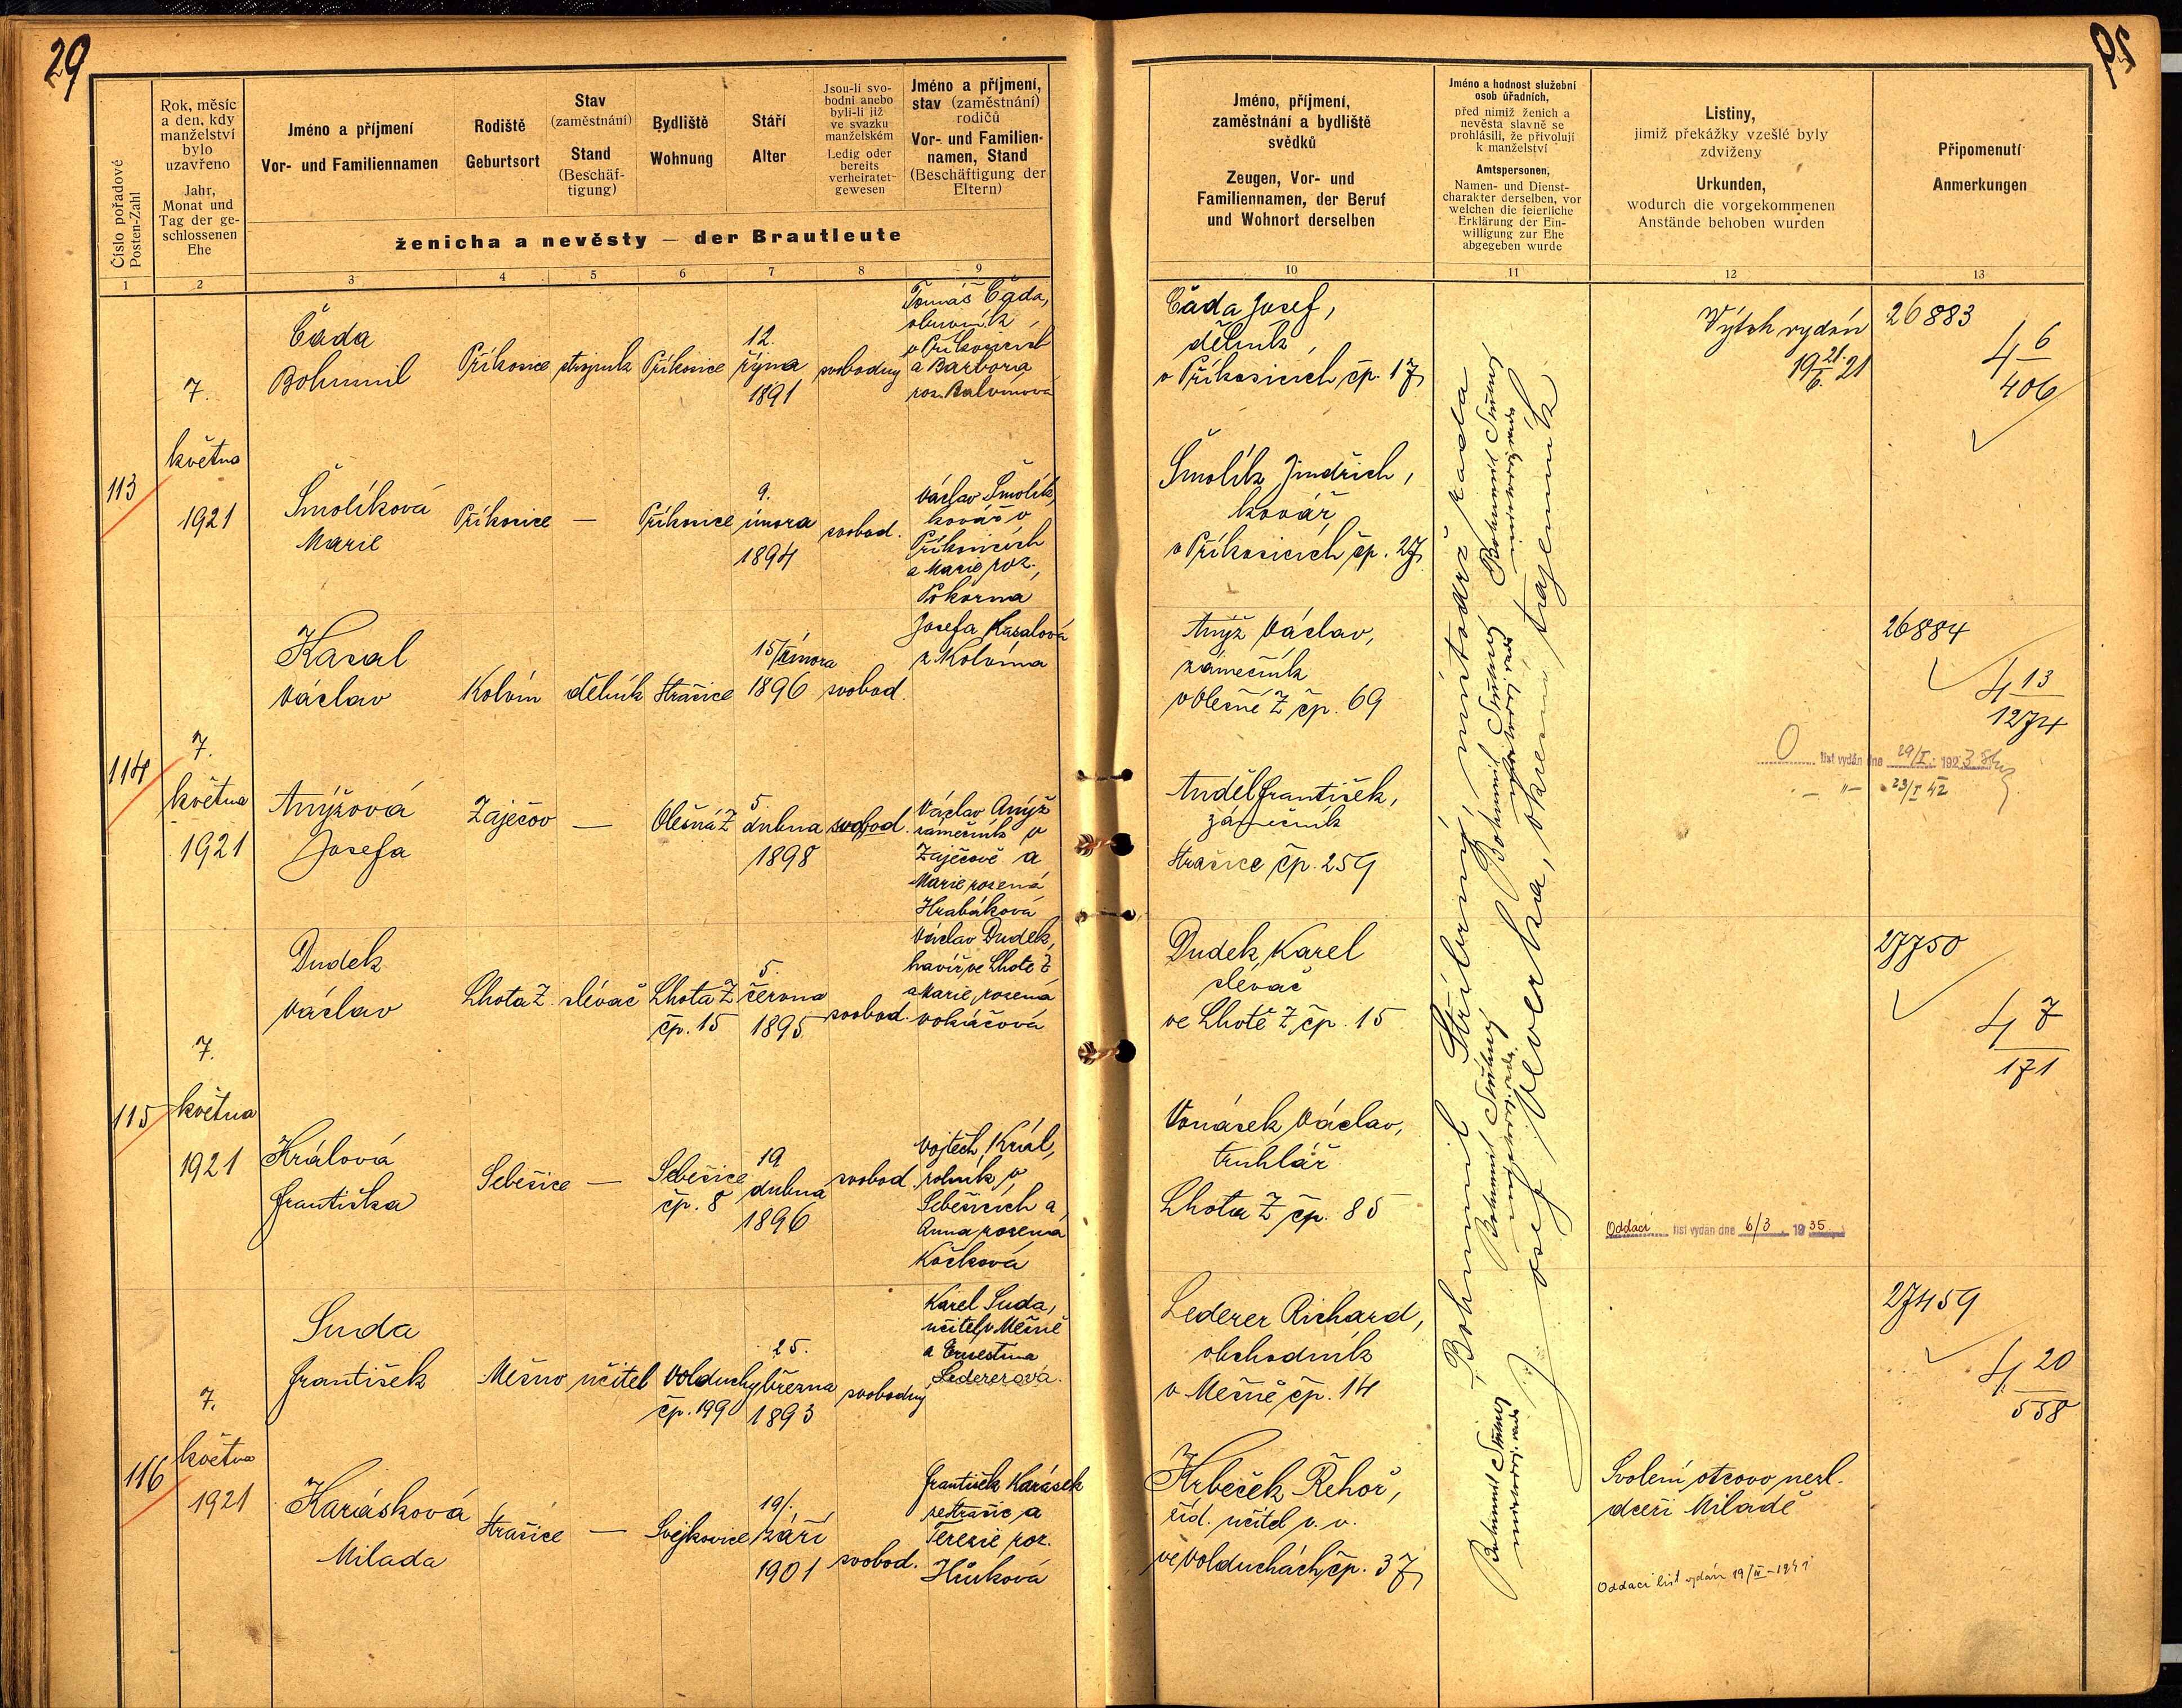 29
Číslo pořadové
Posten-Zahl
1
Rok, měsíc
a den, kdy
manželství
bylo
uzavřeno
Jahr,
Monat und
Tag der ge-
schlossenen
Ehe
2
Jméno a příjmení
Vor- und Familiennamen
3
Rodiště
Geburtsort
4
Stav
(zaměstnání)
Stand
(Beschäf-
tigung)
5
Bydliště
Wohnung
6
Stáří
Alter
7
Jsou-li svo-
bodni anebo
byli-li již
ve svazku
manželském
Ledig oder
bereits
verheiratet-
gewesen
8
Jméno a příjmení,
stav (zaměstnání)
rodičů
Vor- und Familien-
namen, Stand
(Beschäftigung der
Eltern)
9
ženicha a nevěsty — der Brautleute
Jméno, příjmení,
zaměstnání a bydliště
svědků
Zeugen, Vor- und
Familiennamen, der Beruf
und Wohnort derselben
10
Jméno a hodnost služební
osob úřadních,
před nimiž ženich a
nevěsta slavně se
prohlásili, že přivolují
k manželství
Amtspersonen,
Namen- und Dienst-
charakter derselben, vor
welchen die feierliche
Erklärung der Ein-
willigung zur Ehe
abgegeben wurde
11
Listiny,
jimiž překážky vzešlé byly
zdviženy
Urkunden,
wodurch die vorgekommenen
Anstände behoben wurden
12
Připomenutí
Anmerkungen
13
113
7.
května
1921
Čada
Bohumil
Příkosice
strojník
Příkosice
12.
října
1891
svobodný
Tomáš Čada,
obuvník
v Příkosicích
a Barbora
roz. Balvínová
Čada Josef,
dělník
v Příkosicích čp. 17
Výtah vydán
19 21/6. 21
26883
4 6
406
Šmolíková
Marie
Příkosice
—
Příkosice
9.
února
1894
svobod.
Václav Šmolík,
kovář v
Příkosicích
a Marie roz.
Pokorna
Šmolík Jindřich,
kovář
v Příkosicích čp. 27
114
7.
května
1921
Kasal
Václav
Kolvín
dělník
Strašice
15/února
1896
svobod.
Josefa Kasalová
z Kolvína
Anýž Václav,
zámečník
v Olešné Z čp. 69
26884
4 13
1274
O list vydán dne 29/I. 1923
— " — 23/I 42
Anýžová
Josefa
Zaječov
—
Olešná Z
5.
dubna
1898
svobod.
Václav Anýž
zámečník v
Zaječově a
Marie rozená
Hrabáková
Anděl František,
zámečník
Strašice čp. 259
115
7.
května
1921
Dudek
Václav
Lhota Z.
slévač
Lhota Z
čp. 15
5.
června
1895
svobod.
Václav Dudek,
havíř, ve Lhotě Z
a Marie, rozená
Vokáčová
Dudek Karel
slévač
ve Lhotě Z čp. 15
27750
4 7
171
Králová
Františka
Sebešice
—
Sebešice
čp. 8
19
dubna
1896
svobod.
Vojtěch Král,
rolník v
Sebešicích a
Anna rozená
Kočková
Vonásek Václav,
truhlář
Lhota Z čp. 85
Oddací list vydán dne 6/3 1935
116
7.
května
1921
Suda
František
Mešno
učitel
Volduchy
čp. 199
25.
března
1893
svobodný
Karel Suda,
učitel v Mešně
a Ernestina
Ledererová.
Lederer Richard,
obchodník
v Mešně čp. 14
27459
4 20
558
Karásková
Milada
Strašice
—
Svejkovice
19/.
září
1901
svobod.
František Karásek
ze Strašic a
Terezie roz.
Hůrková
Krbeček Řehoř,
říd. učitel v. v.
ve Volduchách čp. 37
Svolení otcovo nezl.
dceři Miladě
Oddací list vydán 19/IV - 1941
Bohumil Stříbrný, místodrž. rada
Josef Veverka, okresní tajemník